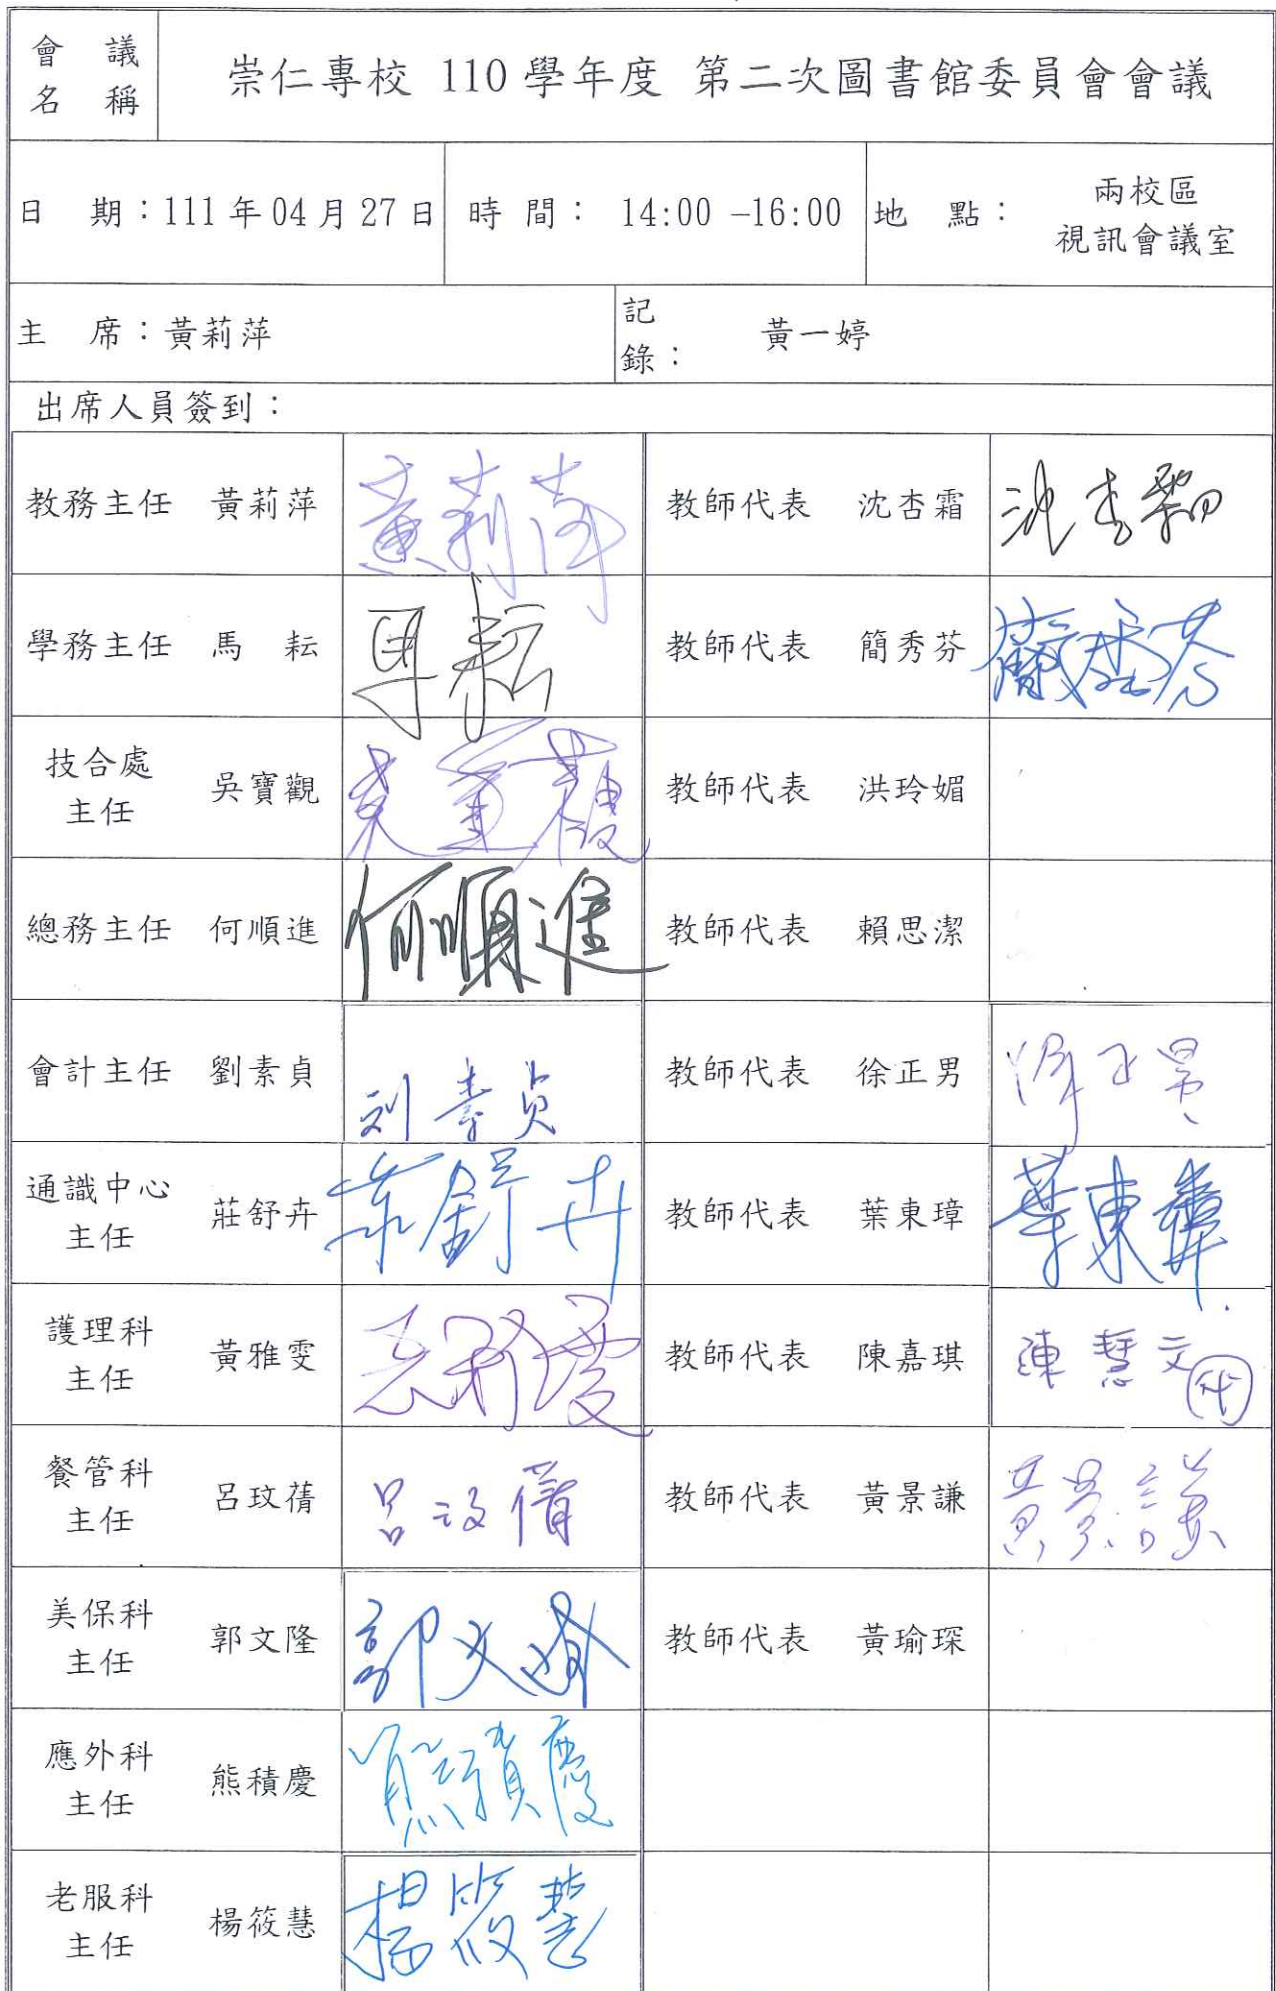 會 議
名 稱
崇仁專校 110 學年度 第二次圖書館委員會會議
日 期：111 年 04 月 27 日
時 間： 14:00 –16:00
地 點：
兩校區
視訊會議室
主 席：黃莉萍
記
錄：
黃一婷
出席人員簽到：
教務主任 黃莉萍 黃莉萍
教師代表 沈杏霜 沈杏霜
學務主任 馬 耘 馬耘
教師代表 簡秀芬 簡秀芬
技合處
主任
吳寶觀 吳寶觀
教師代表 洪玲媚
總務主任 何順進 何順進
教師代表 賴思潔
會計主任 劉素貞 刘素貞
教師代表 徐正男 徐正男
通識中心
主任
莊舒卉 莊舒卉
教師代表 葉東瑋 葉東瑋
護理科
主任
黃雅雯 黃雅雯
教師代表 陳嘉琪 陳慧文代
餐管科
主任
呂玟蒨 呂玟蒨
教師代表 黃景謙 黃景謙
美保科
主任
郭文隆 郭文隆
教師代表 黃瑜琛
應外科
主任
熊積慶 熊積慶
老服科
主任
楊筱慧 楊筱慧